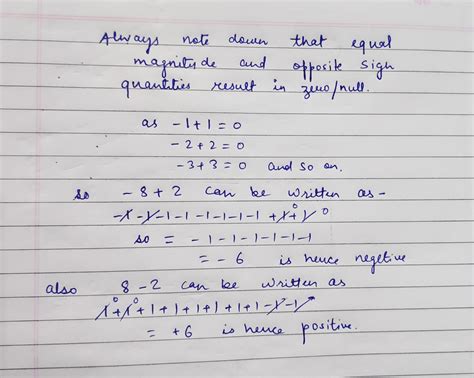 Always note down that equal
magnitude and opposite sign
quantities result in zero/null.
as -1+1=0
-2+2=0
-3+3=0 and so on.
so -8+2 can be written as-
-1-1-1-1-1-1-1-1+1+1 0 0
so = -1-1-1-1-1-1
= -6 is hence negetive
also 8-2 can be written as
1+1+1+1+1+1+1+1-1-1 0 0
= +6 is hence positive.